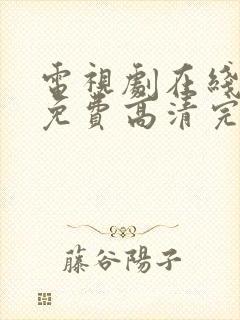 電視劇在綫
免費高清完
藤谷陽子